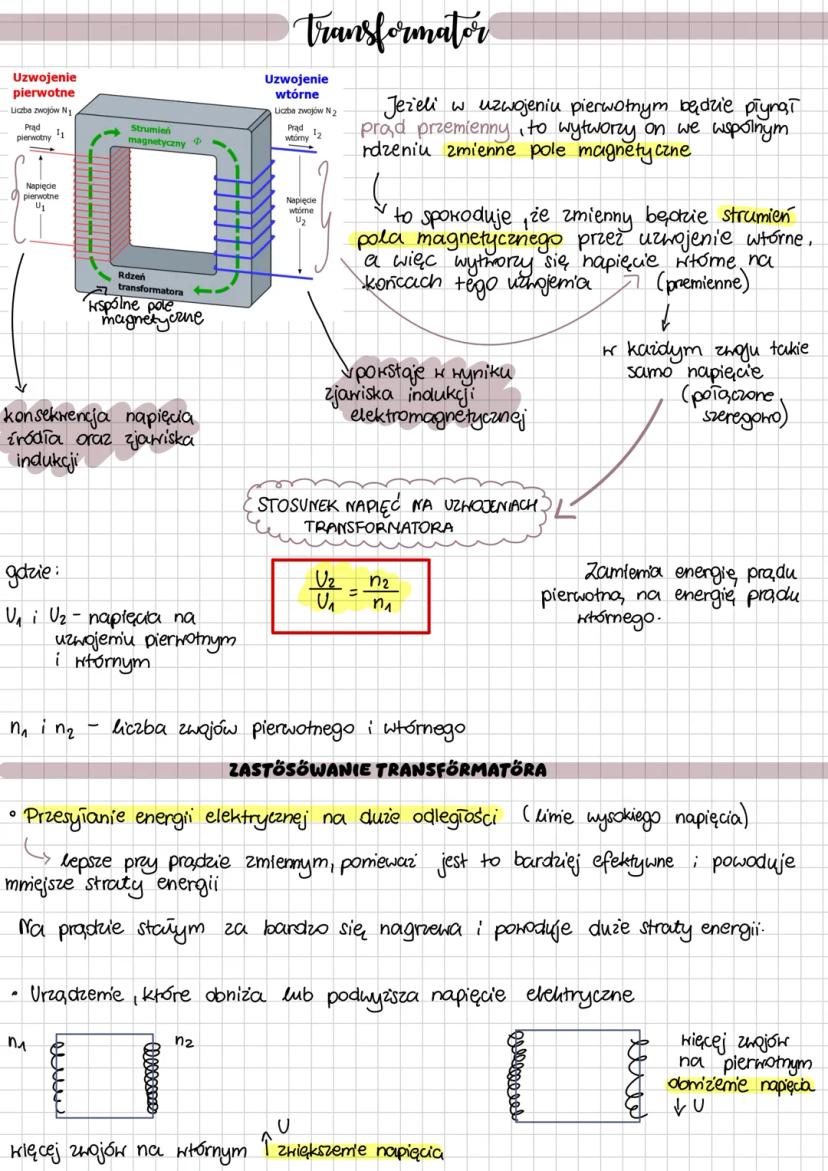 transformator
Uzwojenie
pierwotne
Liczba zwojów N1
Prąd
pierwotny I1
Napięcie
pierwotne
U1
Strumień
magnetyczny Φ
Rdzeń
transformatora
wspólne pole
magnetyczne
Uzwojenie
wtórne
Liczba zwojów N2
Prąd
wtórny I2
Napięcie
wtórne
U2
Jeżeli w uzwojeniu pierwotnym będzie płynął
prąd przemienny, to wytworzy on we wspólnym
rdzeniu zmienne pole magnetyczne
to spowoduje, że zmienny będzie strumień
pola magnetycznego przez uzwojenie wtórne,
a więc wytworzy się napięcie wtórne na
końcach tego uzwojenia (przemienne)
w każdym zwoju takie
samo napięcie
(połączone
szeregowo)
powstaje w wyniku
zjawiska indukcji
elektromagnetycznej
konsekwencja napięcia
źródła oraz zjawiska
indukcji
STOSUNEK NAPIĘĆ NA UZWOJENIACH
TRANSFORMATORA
gdzie:
U1 i U2 - napięcia na
uzwojeniu pierwotnym
i wtórnym
U2/U1 = n2/n1
Zamienia energię prądu
pierwotną na energię prądu
wtórnego.
n1 i n2 - liczba zwojów pierwotnego i wtórnego
ZASTOSOWANIE TRANSFORMATORA
• Przesyłanie energii elektrycznej na duże odległości (linie wysokiego napięcia)
lepsze przy prądzie zmiennym, ponieważ jest to bardziej efektywne i powoduje
mniejsze straty energii
Na prądzie stałym za bardzo się nagrzewa i powoduje duże straty energii.
• Urządzenie, które obniża lub podwyższa napięcie elektryczne
n1 n2
więcej zwojów na wtórnym ↑U zwiększenie napięcia
więcej zwojów
na pierwotnym
obniżenie napięcia
↓ U